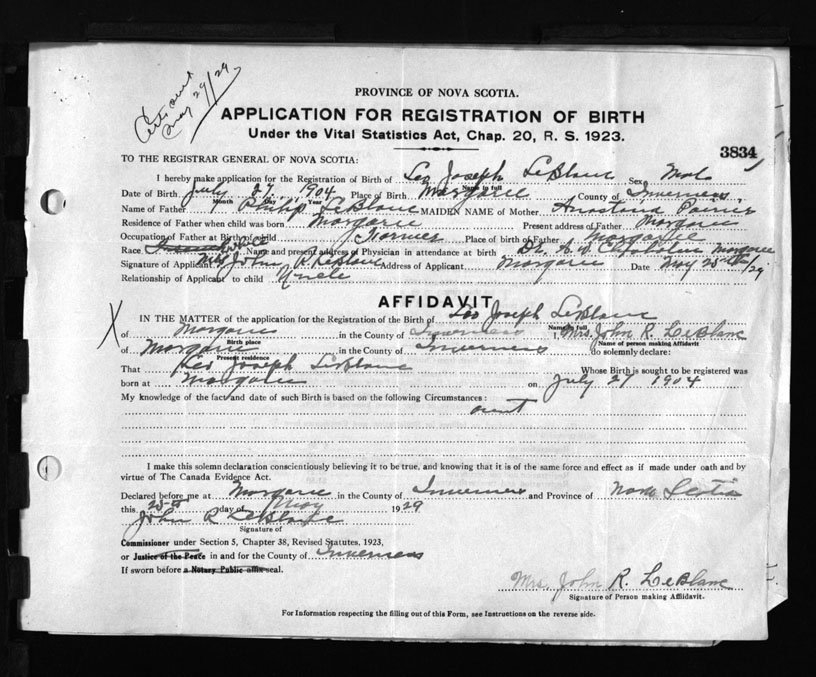 Certs sent
May 29/29
PROVINCE OF NOVA SCOTIA.
APPLICATION FOR REGISTRATION OF BIRTH
Under the Vital Statistics Act, Chap. 20, R. S. 1923.
3834
TO THE REGISTRAR GENERAL OF NOVA SCOTIA:
I hereby make application for the Registration of Birth of Leo Joseph LeBlanc Sex Male
Name in full
Date of Birth July 27, 1904 Place of Birth Margaree County of Inverness
Month Day Year
Name of Father Philip LeBlanc MAIDEN NAME of Mother Poirier
Residence of Father when child was born Margaree Present address of Father Margaree
Occupation of Father at Birth of child Farmer Place of birth of Father Margaree
Race French Name and present address of Physician in attendance at birth Dr. Margaree
Signature of Applicant Mrs John R. LeBlanc Address of Applicant Margaree Date May 25th/29
Relationship of Applicant to child Uncle
AFFIDAVIT
IN THE MATTER of the application for the Registration of the Birth of Leo Joseph LeBlanc
Name in full
X of Margaree in the County of Inverness I, Mrs. John R. LeBlanc
Birth place Name of person making Affidavit
of Margaree in the County of Inverness do solemnly declare:
Present residence
That Leo Joseph LeBlanc Whose Birth is sought to be registered was
born at Margaree on July 27 1904
My knowledge of the fact and date of such Birth is based on the following Circumstances:
aunt
I make this solemn declaration conscientiously believing it to be true, and knowing that it is of the same force and effect as if made under oath and by
virtue of The Canada Evidence Act.
Declared before me at Margaree in the County of Inverness and Province of Nova Scotia
this 25th day of May 1929
John R LeBlanc
Signature of
Commissioner under Section 5, Chapter 38, Revised Statutes, 1923,
or Justice of the Peace in and for the County of Inverness
If sworn before a Notary Public affix seal.
Mrs. John R. LeBlanc
Signature of Person making Affidavit.
For Information respecting the filling out of this Form, see Instructions on the reverse side.